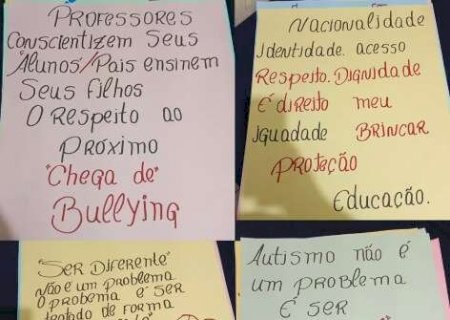 PROFESSORES
Conscientizem Seus
Alunos/Pais ensinem
Seus Filhos
O Respeito ao
Próximo
"Chega de"
Bullying
Nacionalidade
Identidade. acesso
Respeito. Dignidade
É direito meu
Iguadade Brincar
Proteção
Educação.
"Ser Diferente"
não é um problema
O probema é ser
tratado de forma
Autismo não é
um problema
É ser